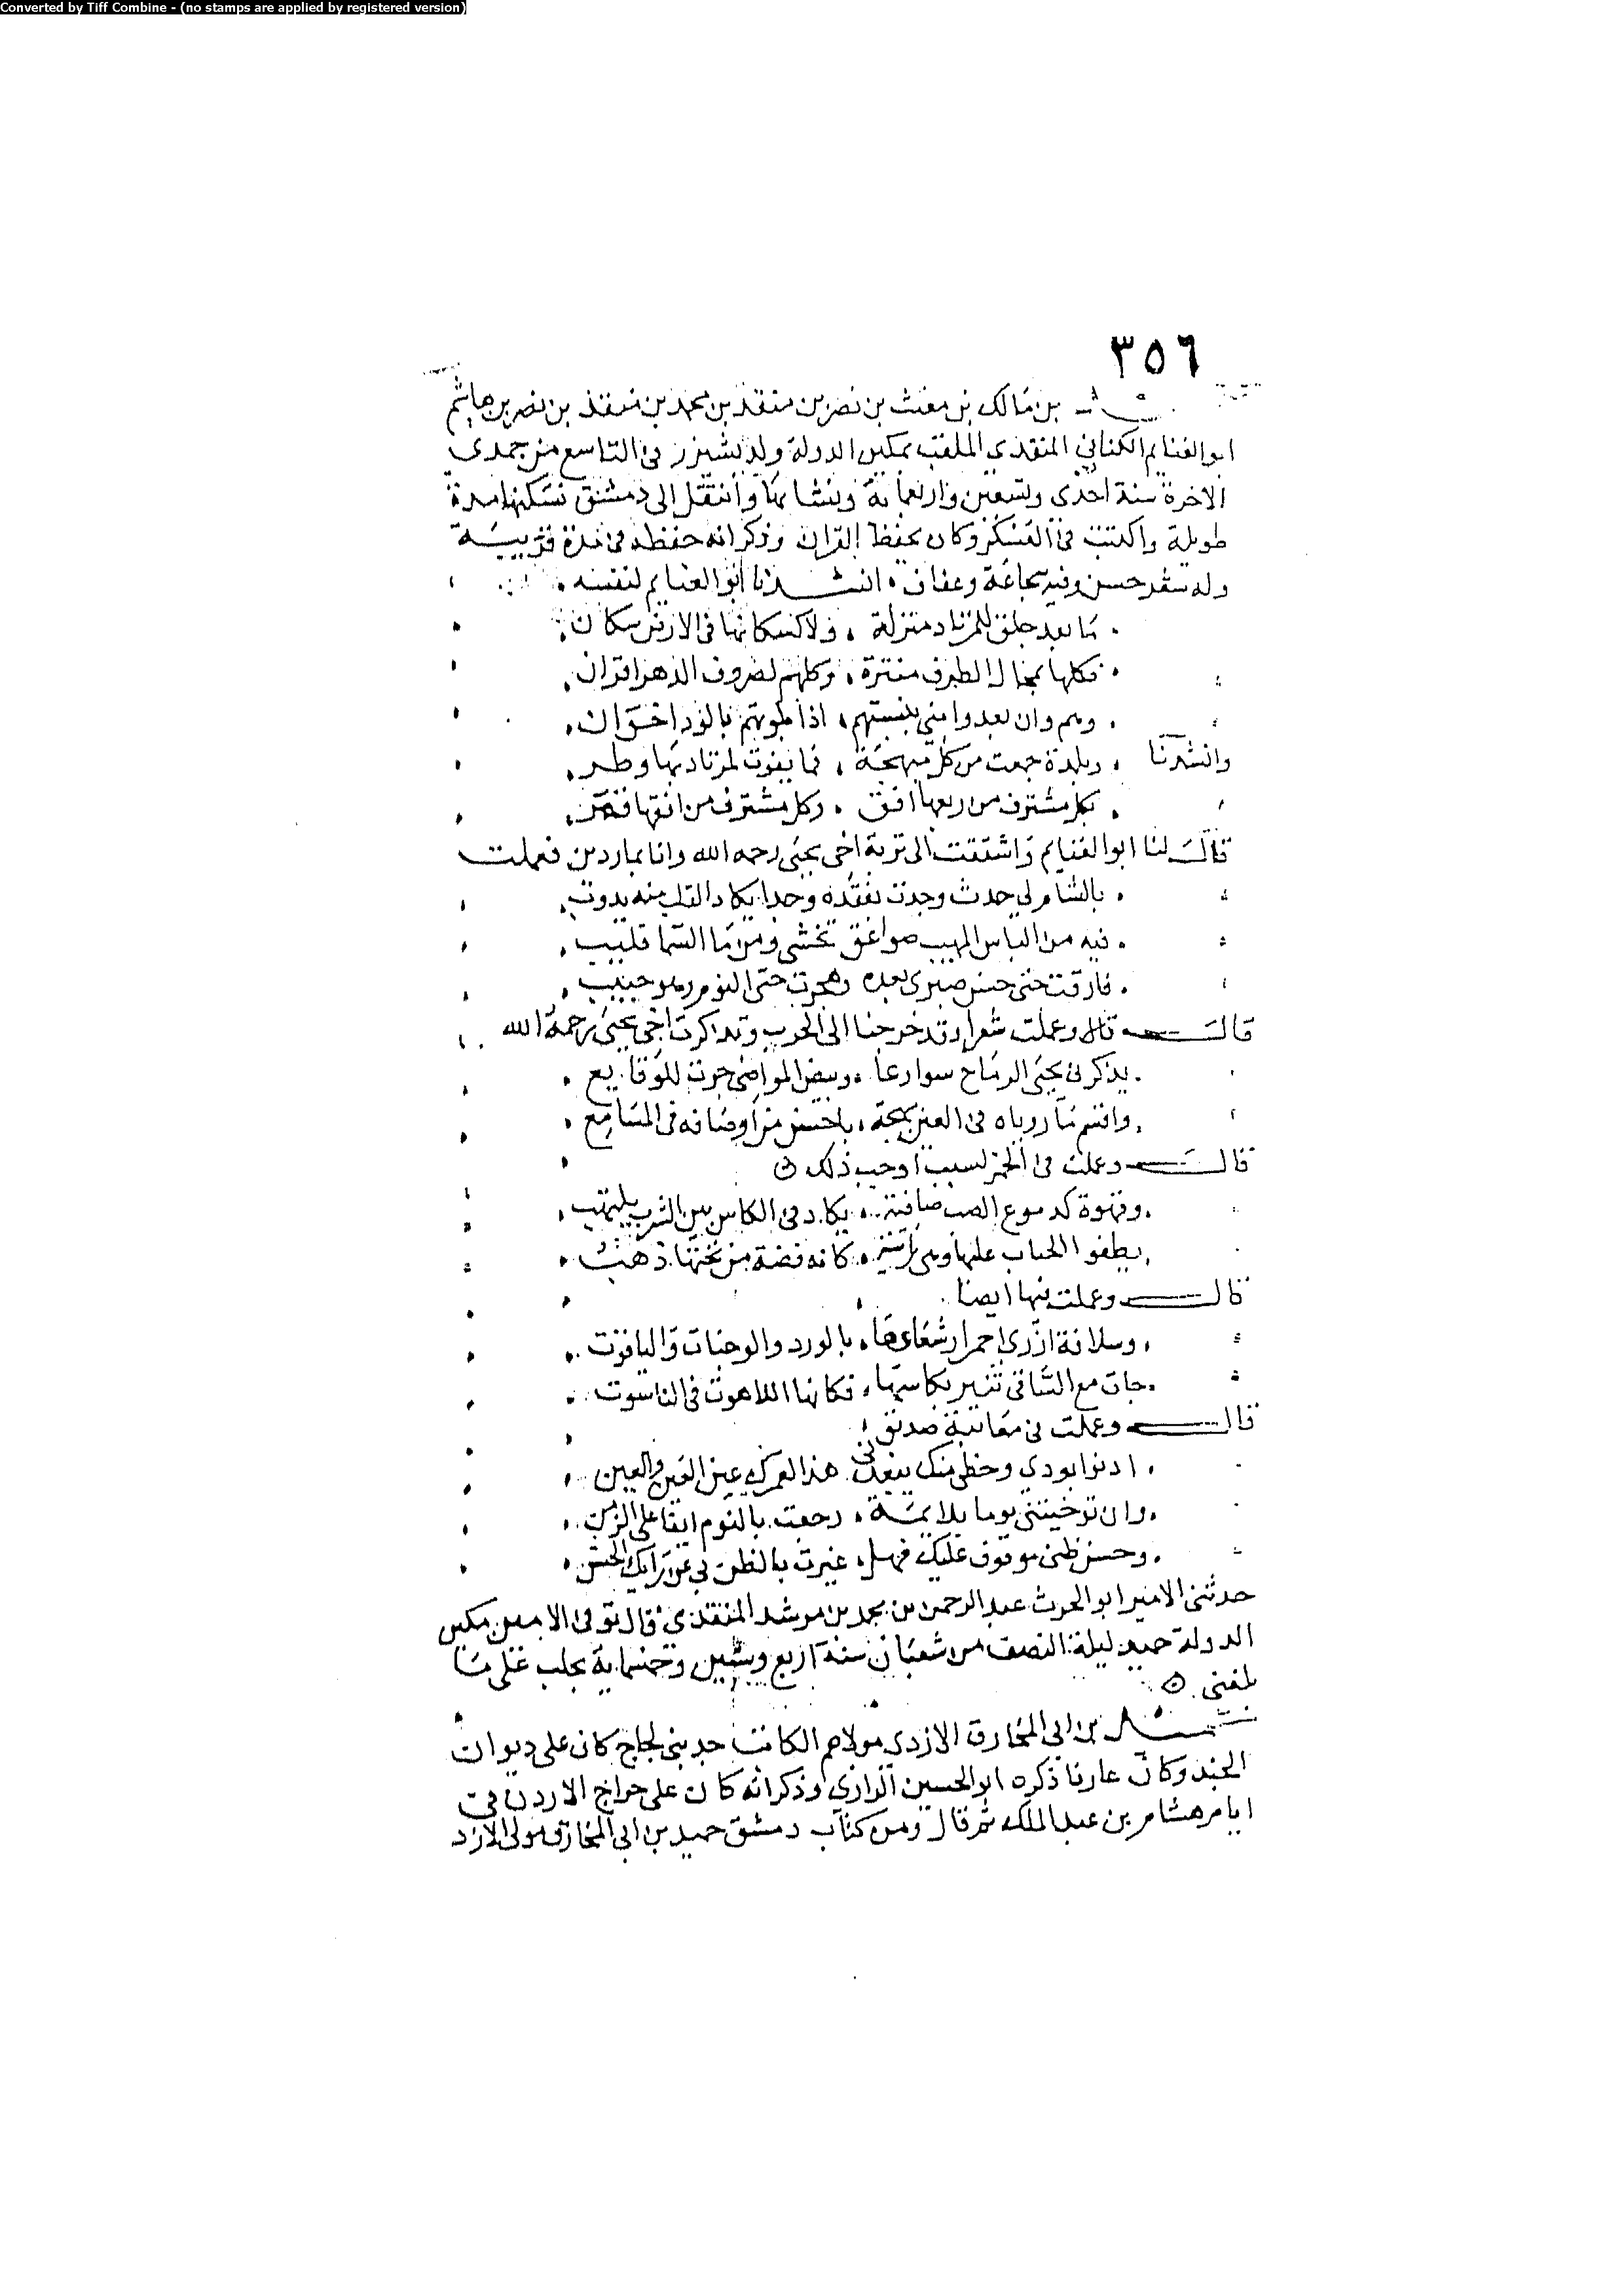 Converted by Tiff Combine - (no stamps are applied by registered version)
٣٥٦
بن مالك بن مغيث بن نصر بن منقذ بن محمد بن منقذ بن نصر بن هاشم
ابو الغنايم الكناني المنقذي الملقب بمكين الدولة ولد بشيزر في التاسع من جمدى
الاخرة سنة احدى وتسعين واربعماية ونشا بها وانتقل الى دمشق فسكنها مدة
طويلة واكتتب في العسكر وكان يحفظ القران وذكر انه حفظه في مدة قريبة
وله شعر حسن وفيه شجاعة وعفاف انشدنا ابو الغنايم لنفسه
ما بعد جلق للمرتاد منزلة ولا كسكانها في الارض سكان
فكلها لمجال الطرف منتزه وكلهم لصروف الدهر اقران
وهم وان بعدوا مني بنسبتهم اذا بلوتهم بالود اخوان
وانشدنا وبلدة جمعت من كل مبهجة فما يفوت لمرتاد بها وطر
بكل مشترف من ربعها افق وكل مشترف من افقها قمر
قال لنا ابو الغنايم واشتقت الى تربة اخي يحيى رحمه الله وانا بماردين فعملت
بالشام لي جدث وجدت بفقده وجدا يكاد القلب منه يذوب
فيه من الباس المهيب صواعق تخشى ومن ما السما قليب
فارقت حتى حسن صبري بعده وهجرت حتى النوم وهو حبيب
قال قال وعملت شعرا وقد خرجنا الى الحرب وتذاكرت اخي يحيى رحمه الله
يذكرني يحيى الرماح سوارعا وبيض المواضي جردت للوقايع
واقسم ما روياه في العين بهجة باحسن من اوصافه في المسامع
قال وعملت في الخمر لسبب اوجب ذلك
وقهوة كدموع الصب صافية يكاد في الكاس بين الشرب يلتهب
يطفوا الحباب عليها وهي كانه فضة من تحتها ذهب
قال وعملت فيها ايضا
وسلافة ازرى احمرار شعاعها بالورد والوجنات والياقوت
جات مع الساقي تنير بكاسها فكانها اللاهوت في الناسوت
قال وعملت في معاتبة صديق
ادنوا بودي وحظي منك يبعدني هذا لعمرك عين الغبن والعين
وان توخيتني يوما بلايمة رجعت باللوم ابقا على الزمن
وحسن ظني موقوف عليك فهل غيرت بالظن بي عن رايك الحسن
حدثني الامير ابو الحرث عبد الرحمن بن محمد بن مرشد المنقذي قال توفي الامير مكين
الدولة حميد ليلة النصف من شعبان سنة اربع وستين وخمسماية بحلب على ما
بلغني
بن ابي المخارق الازدي مولاهم الكاتب كان على ديوان
الجند وكان عارفا ذكره ابو الحسين الرازي وذكر انه كان على خراج الاردن في
ايام هشام بن عبد الملك ثم قال ومن كتاب دمشق حميد بن ابي المخارق مولى الازد